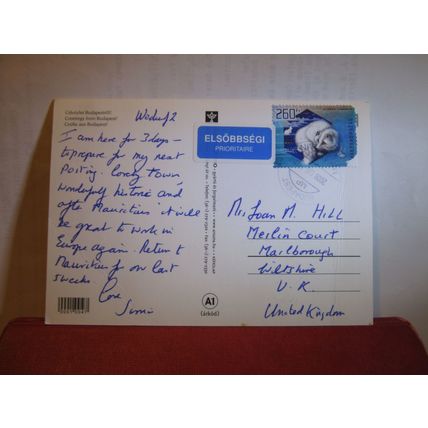 Üdvözlet Budapestről!
Greetings from Budapest!
Grüße aus Budapest!
I am here for 3 days –
to prepare for my next
Posting. Lovely town
Wonderfully historic and
after Mauritius it will
be great to work in
Europe again. Return to
Mauritius for our last
5 weeks.
Love
ELSŐBBSÉGI
PRIORITAIRE
260
Mrs Joan M. Hill
Merlin Court
Marlborough
Wiltshire
U.K.
United Kingdom
A1
(árkód)